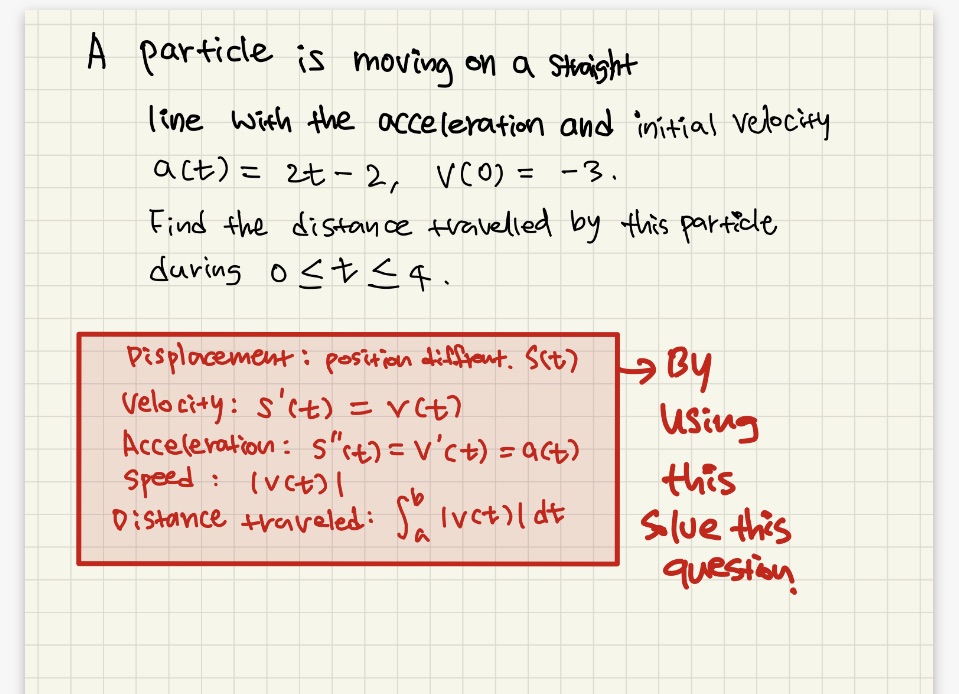 A particle is moving on a straight
line with the acceleration and initial velocity
a(t) = 2t - 2, V(0) = -3.
Find the distance travelled by this particle
during 0 ≤ t ≤ 4.
Displacement: position diffrent. S(t)
Velocity: S'(t) = v(t)
Acceleration: S"(t) = V'(t) = a(t)
Speed: |v(t)|
Distance traveled: ∫_a^b |v(t)| dt
→ By
Using
this
Solve this
question.